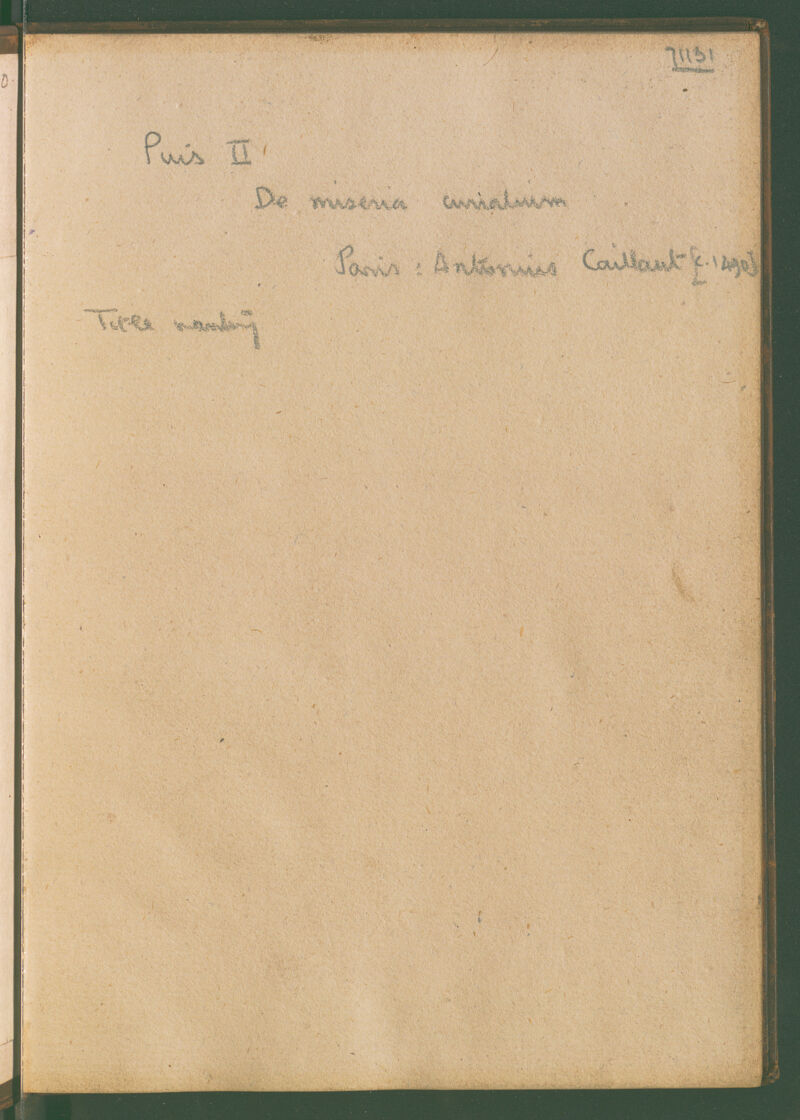 71131
Pius II
De miseria curialium
Paris : Antonius Caillaut [c. 1490]
Title wanting